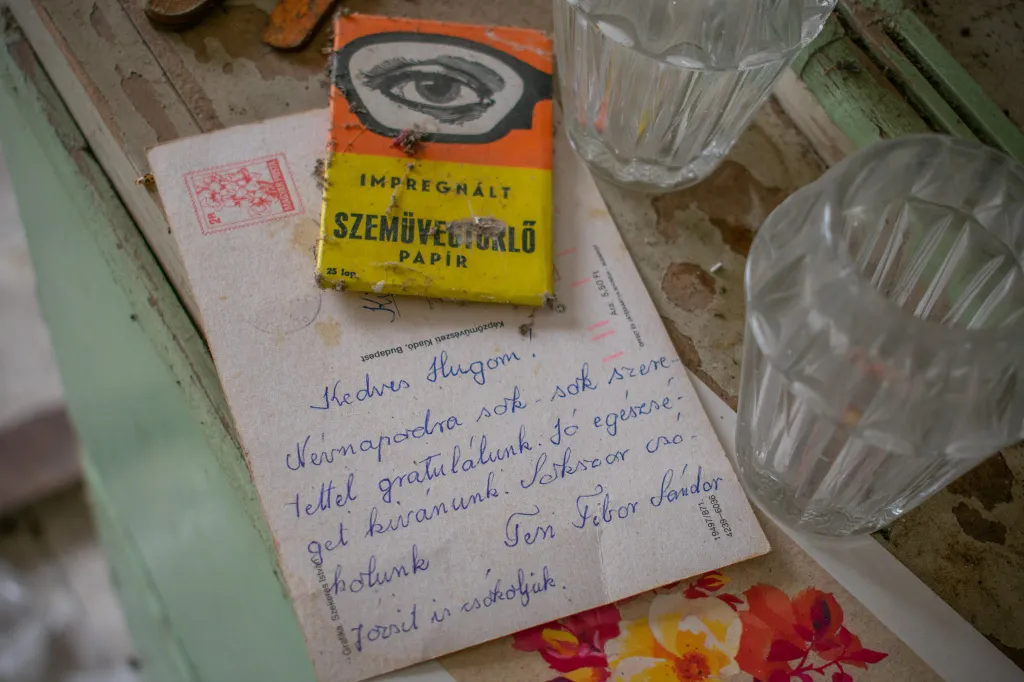 IMPREGNÁLT
SZEMÜVEGTÖRLŐ
PAPÍR
25 lap
Képzőművészeti Kiadó, Budapest
Ára: 5,50 Ft
Kedves Hugom.
Névnapodra sok - sok szere-
tettel gratulálunk. Jó egészsé-
get kívánunk. Sokszor csó-
kolunk Teri Tibor Sándor
Józsit is csókoljuk.
19497/871.
4239-6036